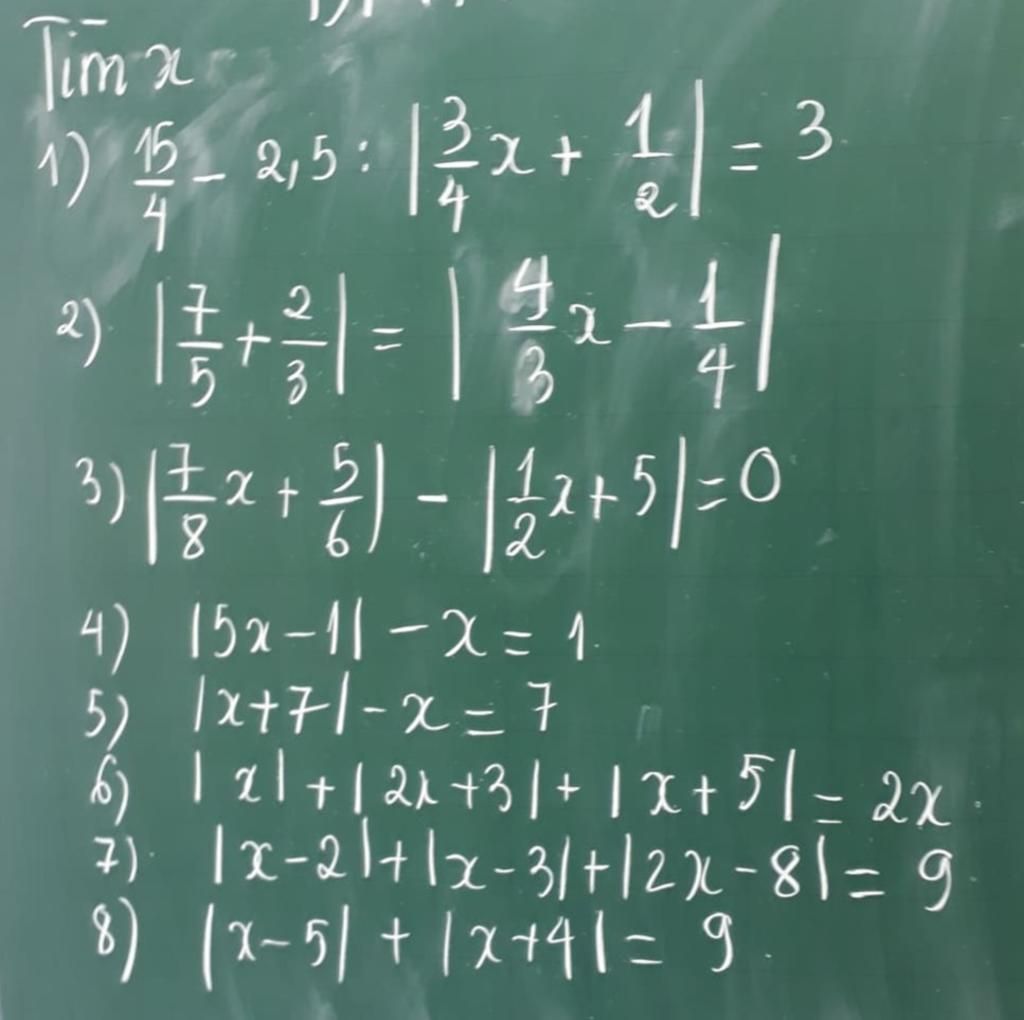 Tìm x
1) 15/4 - 2,5 : |3/4 x + 1/2| = 3
2) |7/5 + 2/3| = |4/3 x - 1/4|
3) |7/8 x + 5/6| - |1/2 x + 5| = 0
4) |5x - 1| - x = 1
5) |x + 7| - x = 7
6) |x| + |2x + 3| + |x + 5| = 2x
7) |x - 2| + |x - 3| + |2x - 8| = 9
8) |x - 5| + |x + 4| = 9